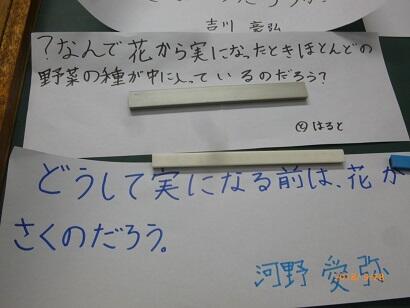 吉川 彰弘
?なんで花から実になったときほとんどの
野菜の種が中に入っているのだろう?
はると
どうして実になる前は、花が
さくのだろう。
河野 愛弥